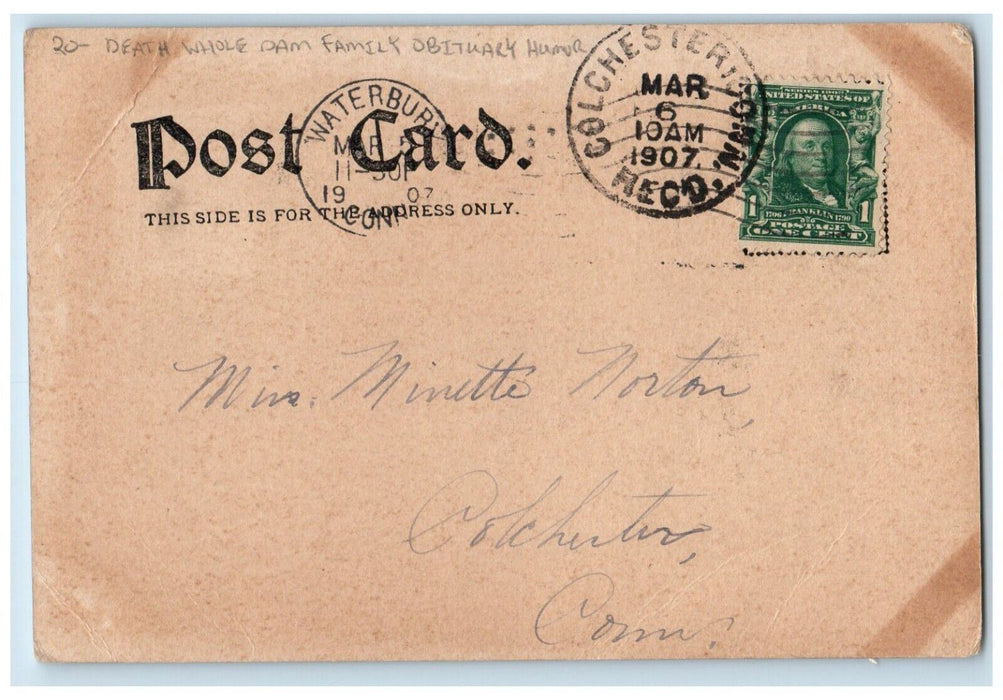 20- DEATH WHOLE DAM FAMILY OBITUARY HUMOR
COLCHESTER, CONN.
MAR
6
10AM
1907.
REC'D.
WATERBURY
MAR
11-30P
19 07
CONN
SERIES 1902
UNITED STATES OF AMERICA
1706 FRANKLIN 1790
1 1
POSTAGE
ONE CENT
Post Card.
THIS SIDE IS FOR THE ADDRESS ONLY.
Miss. Minette Norton,
Colchester,
Conn.